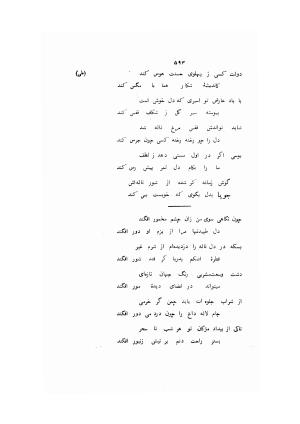 ۵۹۳
دولت کسی ز پهلوی خست هوس کند (طی)
کاندیشهٔ شکار هما با مگس کند
با یاد عارض تو اسیری که دل خوش است
پیوسته سیر گل ز شکاف قفس کند
شاید نوازدش قفس مرغ ناله شد
دل را چو رخنه رخنه کسی چون جرس کند
بوسی اگر در اول مستی دهد ز لطف
ما را بکام دل ثمر پیش رس کند
گوش زمانه کر شده از شور ناله‌اش
جویا بدل بگوی که خویست بس کند
چون نگاهی سوی من زان چشم مخمور افکند
دل طپیدنها مرا از بزم او دور افکند
بسکه در دل ناله را دزدیده‌ام از شرم غیر
قطرهٔ اشکم بدریا گر فتد شور افکند
دشت وحشت‌مشربی رنگ جهان تازه‌ای
میتواند در فضای دیدهٔ مور افکند
از شراب جلوه‌ات یابد چمن گر خرمی
جام لاله داغ را چون درد می دور افکند
تاکی از بیداد مژگان تو هر شب تا سحر
بستر راحت دلم بر نیش زنبور افکند